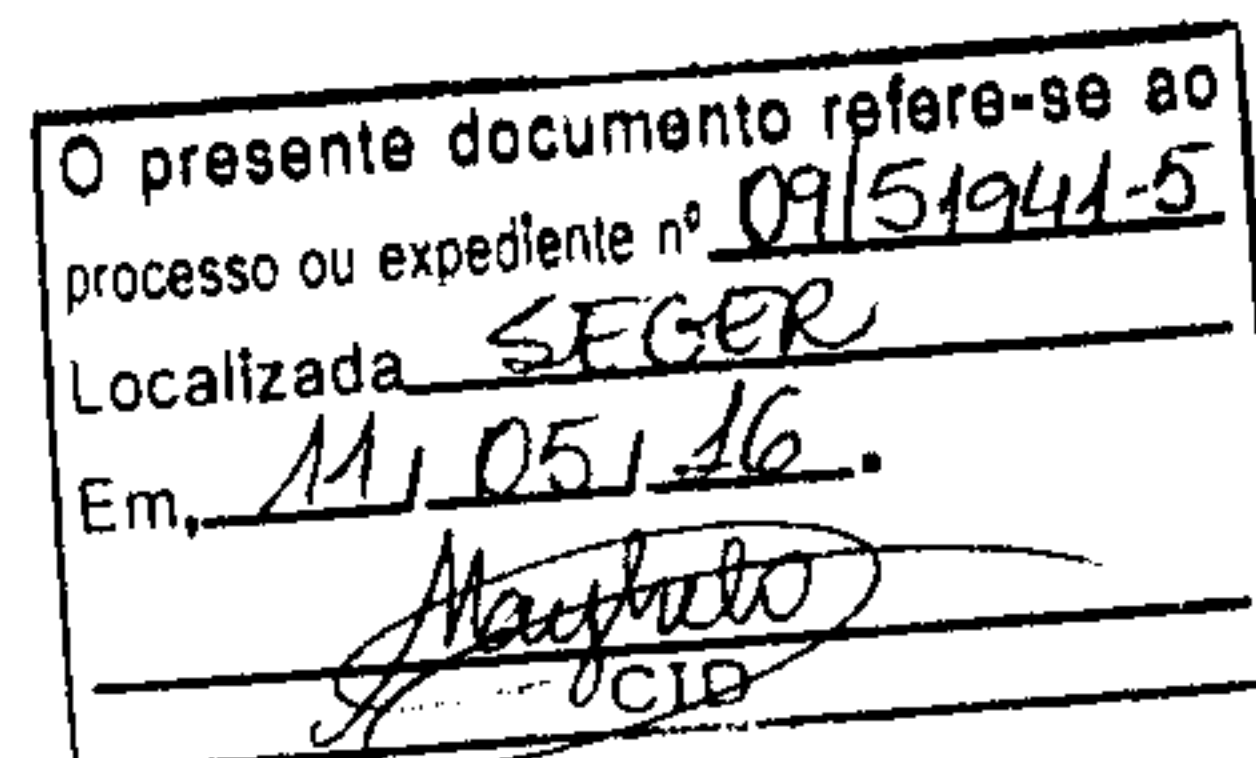 O presente documento refere-se ao
processo ou expediente nº 09/51941-5
Localizada SEGER
Em, 11/05/16.
CID